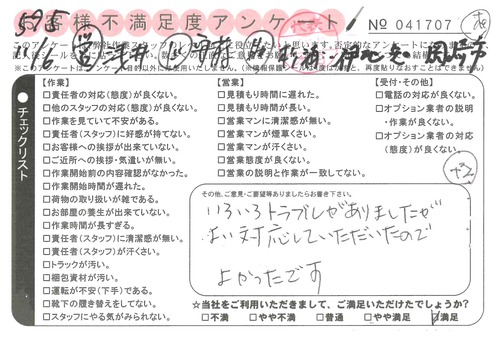 お客様不満足度アンケート
№ 041707
チェックリスト
【作業】
□責任者の対応(態度)が良くない。
□他のスタッフの対応(態度)が良くない。
□作業を見ていて不安がある。
□責任者(スタッフ)に好感が持てない。
□お客様への挨拶が出来ていない。
□ご近所への挨拶・気遣いが無い。
□作業開始前の内容確認がなかった。
□作業開始時間が遅れた。
□荷物の取り扱いが雑である。
□お部屋の養生が出来ていない。
□作業時間が長すぎる。
□責任者(スタッフ)に清潔感が無い。
□責任者(スタッフ)が汗くさい。
□トラックが汚い。
□梱包資材が汚い。
□運転が不安(下手)である。
□靴下の履き替えをしてない。
□スタッフにやる気がみられない。
【営業】
□見積もり時間に遅れた。
□見積もり時間が長い。
□営業マンに清潔感が無い。
□営業マンが煙草くさい。
□営業マンが汗くさい。
□営業態度が良くない。
□営業の説明と作業が一致してない。
【受付・その他】
□電話の対応が良くない。
□オプション業者の説明
・作業が良くない。
□オプション業者の対応
(態度)が良くない。
その他、ご意見・ご要望等ありましたらお書き下さい。
いろいろトラブルがありましたが
よい対応していただいたので
よかったです
☆当社をご利用いただきまして、ご満足いただけたでしょうか?
□不満 □やや不満 □普通 □やや満足 □満足